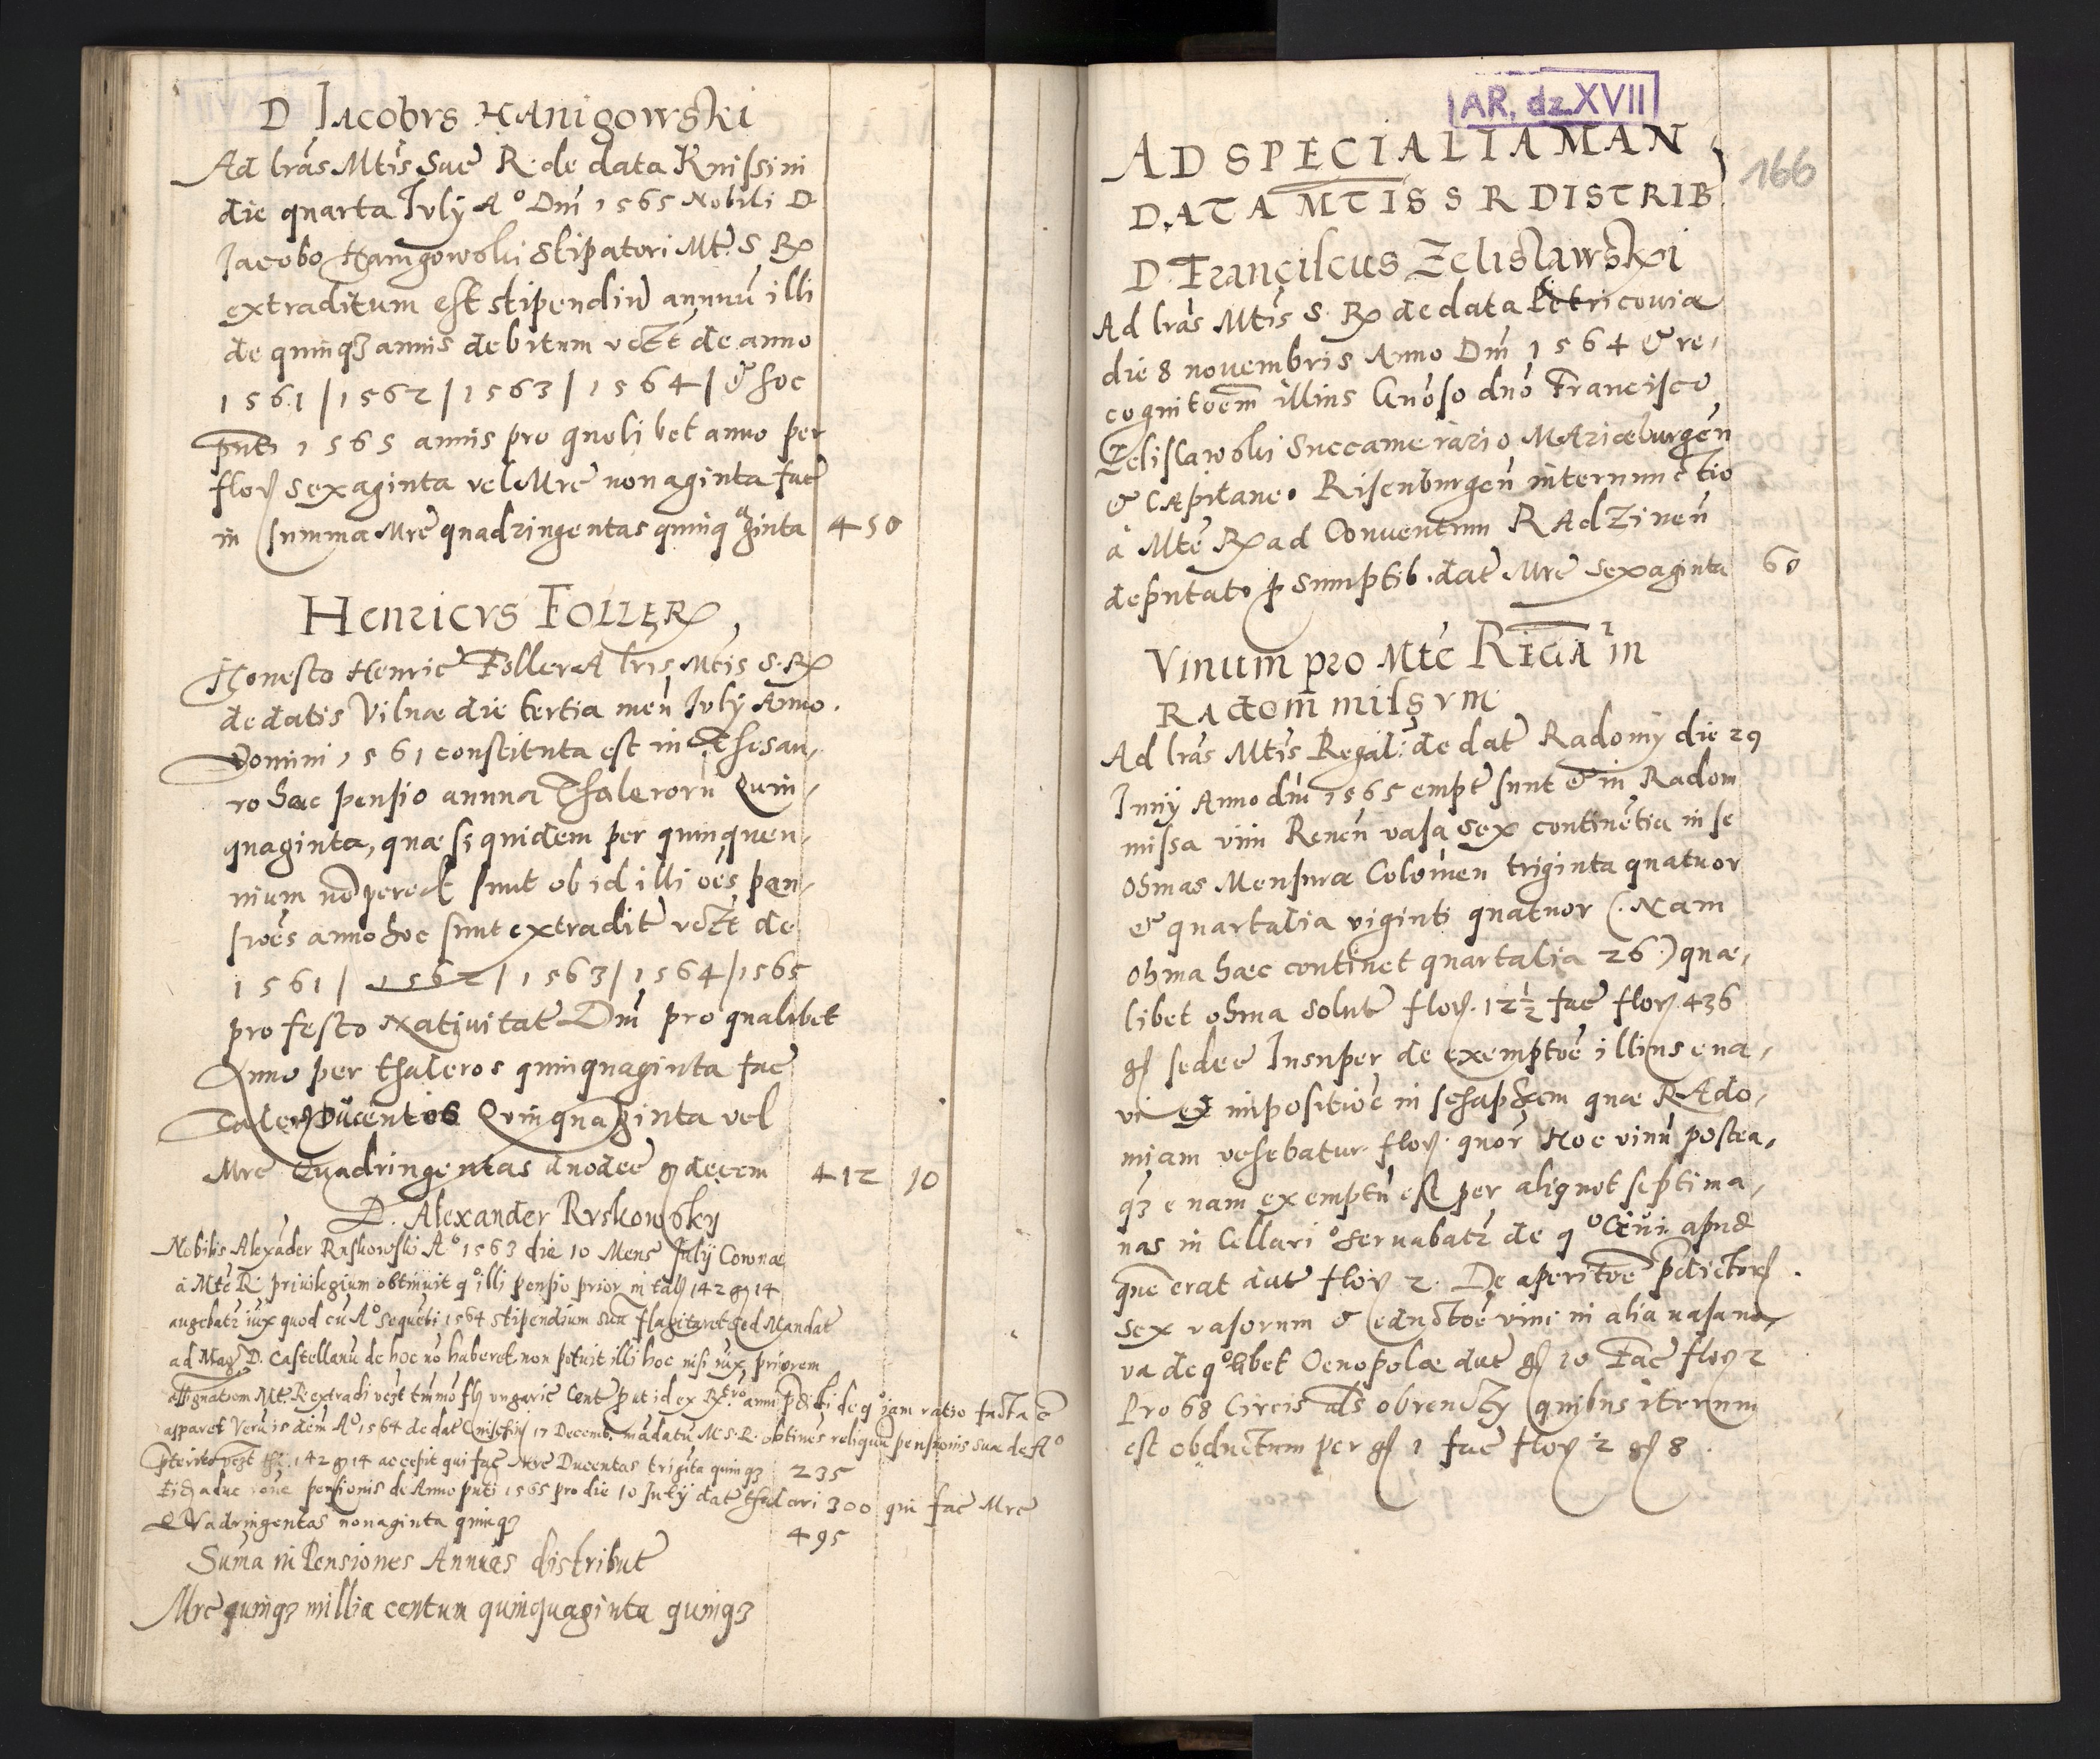 D Iacobvs Hanigowski
Ad lras Mtis Sue R. de data Knissini
die quarta Iuly A° Dni 1565 Nobili D
Iacobo Hanigowski Stipatori Mt. S R
extraditum est stipendiu annuu illi
de quinqȝ annis debitum vczt de anno
1561 | 1562 | 1563 | 1564 | & hoc
pnti 1565 annis pro quolibet anno per
flor sexaginta vel Mrc nonaginta fac
in summa Mrc quadringentas quinquaginta 450
Henricvs Foller
Honesto Henric Foller A lris Mtis S. R
de datis Vilnæ die tertia men Iuly Anno
Domini 1561 constituta est in Thesau,
ro hæc pensio annua Thalerorū Quin,
quaginta, quæ si quidem per quinquen,
nium nō percept sunt ob id illi oēs pan,
sioēs anno hoc sunt extradit vczt de
1561 | 1562 | 1563 | 1564 | 1565
pro festo Nativitat Dni pro qualibet
Anno per thaleros quinquaginta fac
Taler Ducentos Quinquaginta vel
Mrc Quadringentas duodec g decem 412 10
D. Alexander Rvskowsky
Nobilis Alexāder Ruskowski A° 1563 die 10 Mens Julij Cownæ
à Mte R. privilegium obtinuit q° illi pensio prior in tall 142 g 14
augebatr iux quod cū A° Sequēti 1564 stipendium suū flagitaret sed Mandat
ad Mag D. Castellanū de hoc nō haberet, non potuit illi hoc nisi iux priorem
assignatiom Mt. R. extradi vczt tmmō fl vngaric Cent put id ex Rtro anni pdicti de q° iam ratio facta ē
apparet Verū is dem A° 1564 de dat Cnischin 17 Decemb. mādatū M. S. R. obtinēs reliquū pensionis suæ de A°
pterito vczt thl. 142 g 14 accepit qui fac Mrc Ducentas trigīta quinqȝ 235
pensionis de Anno pnti 1565 pro die 10 Julij dat thaleri 300 qui fac Mrc
Qvadringentas nonaginta quinqȝ 495
Suma in Pensiones Annuas distribut
Mrc quinqȝ millia centum quinquaginta quinqȝ
AR, dz. XVII
166
AD SPECIALIA MAN
DATA MTIS S R DISTRIB
D. Franciscus Zelislawski
Ad lras Mtis S. R de data Petricouiæ
die 8 novembris Anno Dni 1564 & re,
cognitoēm illius Gnoso dnō Francisco
Zelislawski Succamerario Mariæburgen
& Capitaneo Risenburgen internunctio
à Mte R ad Conventum Radzinen
deputato p sumptib. dat Mrc sexaginta 60
Vinum pro Mte Regia in
Radom missvm
Ad lras Mtis Regal: de dat Radomy die 29
Iuny Anno dni 1565 empt sunt & in Radom
missa vini Renen vasa sex continētia in se
ohmas Mensuræ Colomen triginta quatuor
& quartalia viginti quatuor (. Nam
ohma hæc continet quartalia 26.) quæ,
libet ohma solut flor. 12½ fac flor 436
g sedec Insuper de exemptoe illius e na,
vi et impositioe in schaphem quæ Rado,
miam vehebatur flor. quor Hoc vinū postea,
qȝ e nam exemptū est per aliquot septima,
nas in Cellario servabatr de q° Civi apud
que erat dat flor 2. De aperitoe pdictor
sex vasorum & eductoe vini in alia vasa no,
va de q°libet Oenopolæ dat g 10 Fac flor 2
Pro 68 Circis als obrenczy quibus iterum
est obductum per g 1 fac flor 2 g 8.